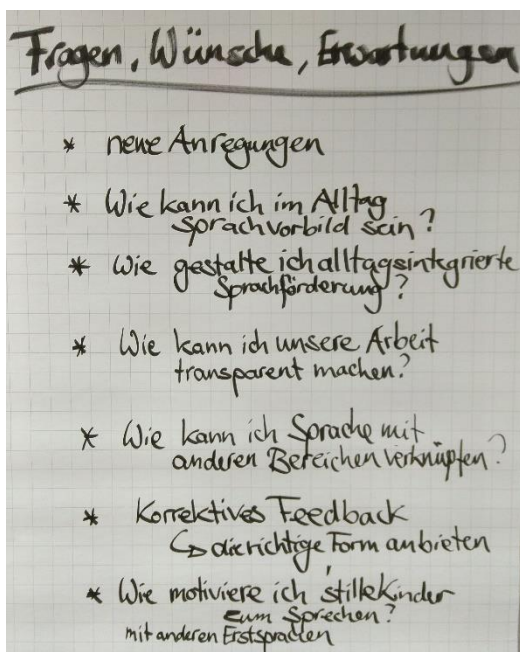 Fragen, Wünsche, Erwartungen
* neue Anregungen
* Wie kann ich im Alltag
Sprachvorbild sein?
* Wie gestalte ich alltagsintegrierte
Sprachförderung?
* Wie kann ich unsere Arbeit
transparent machen?
* Wie kann ich Sprache mit
anderen Bereichen verknüpfen?
* Korrektives Feedback
↳ die richtige Form anbieten
* Wie motiviere ich stille Kinder
zum Sprechen?
mit anderen Erstsprachen